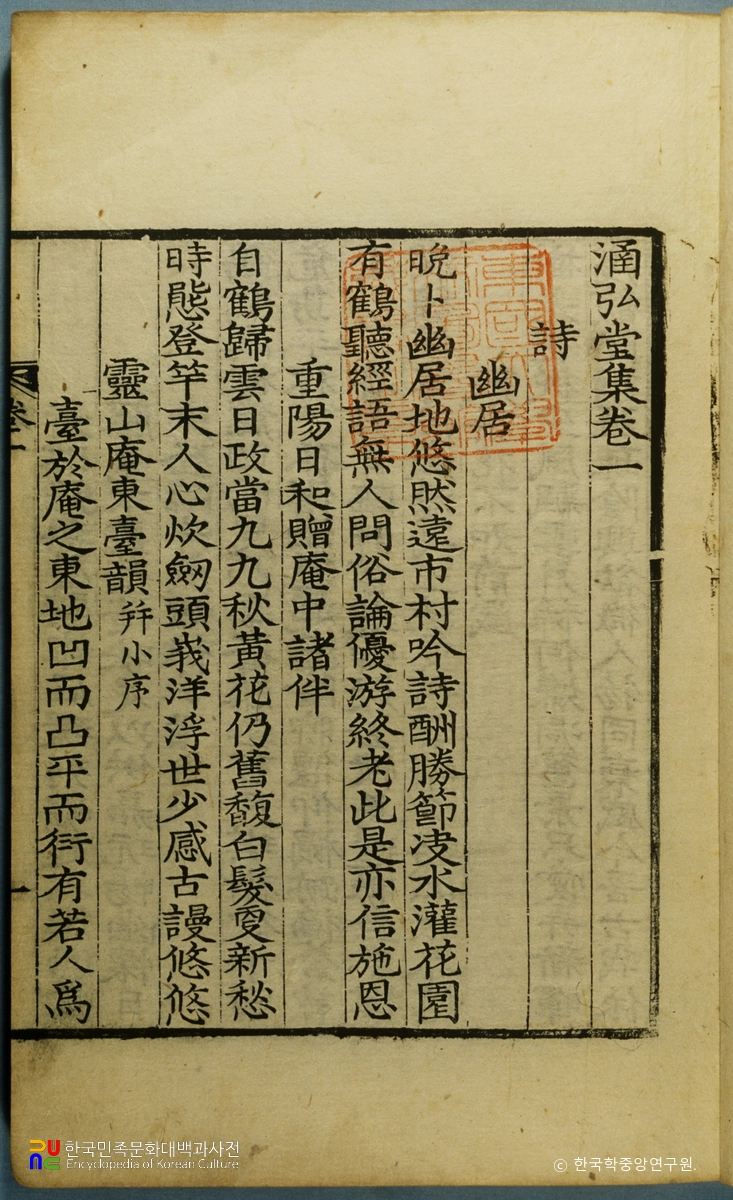 涵弘堂集卷一
詩
幽居
晩卜幽居地悠然遠市村吟詩酬勝節決水灌花園
有鶴聽經語無人問俗論優游終老此是亦信施恩
重陽日和贈庵中諸伴
自鶴歸雲日政當九九秋黃花仍舊馥白髮更新愁
時態登竿末人心炊劒頭峩洋浮世少感古謾悠悠
靈山庵東臺韻 幷小序
臺於庵之東地凹而凸平而衍有若人爲
卷一
一
한국민족문화대백과사전
Encyclopedia of Korean Culture
ⓒ 한국학중앙연구원.